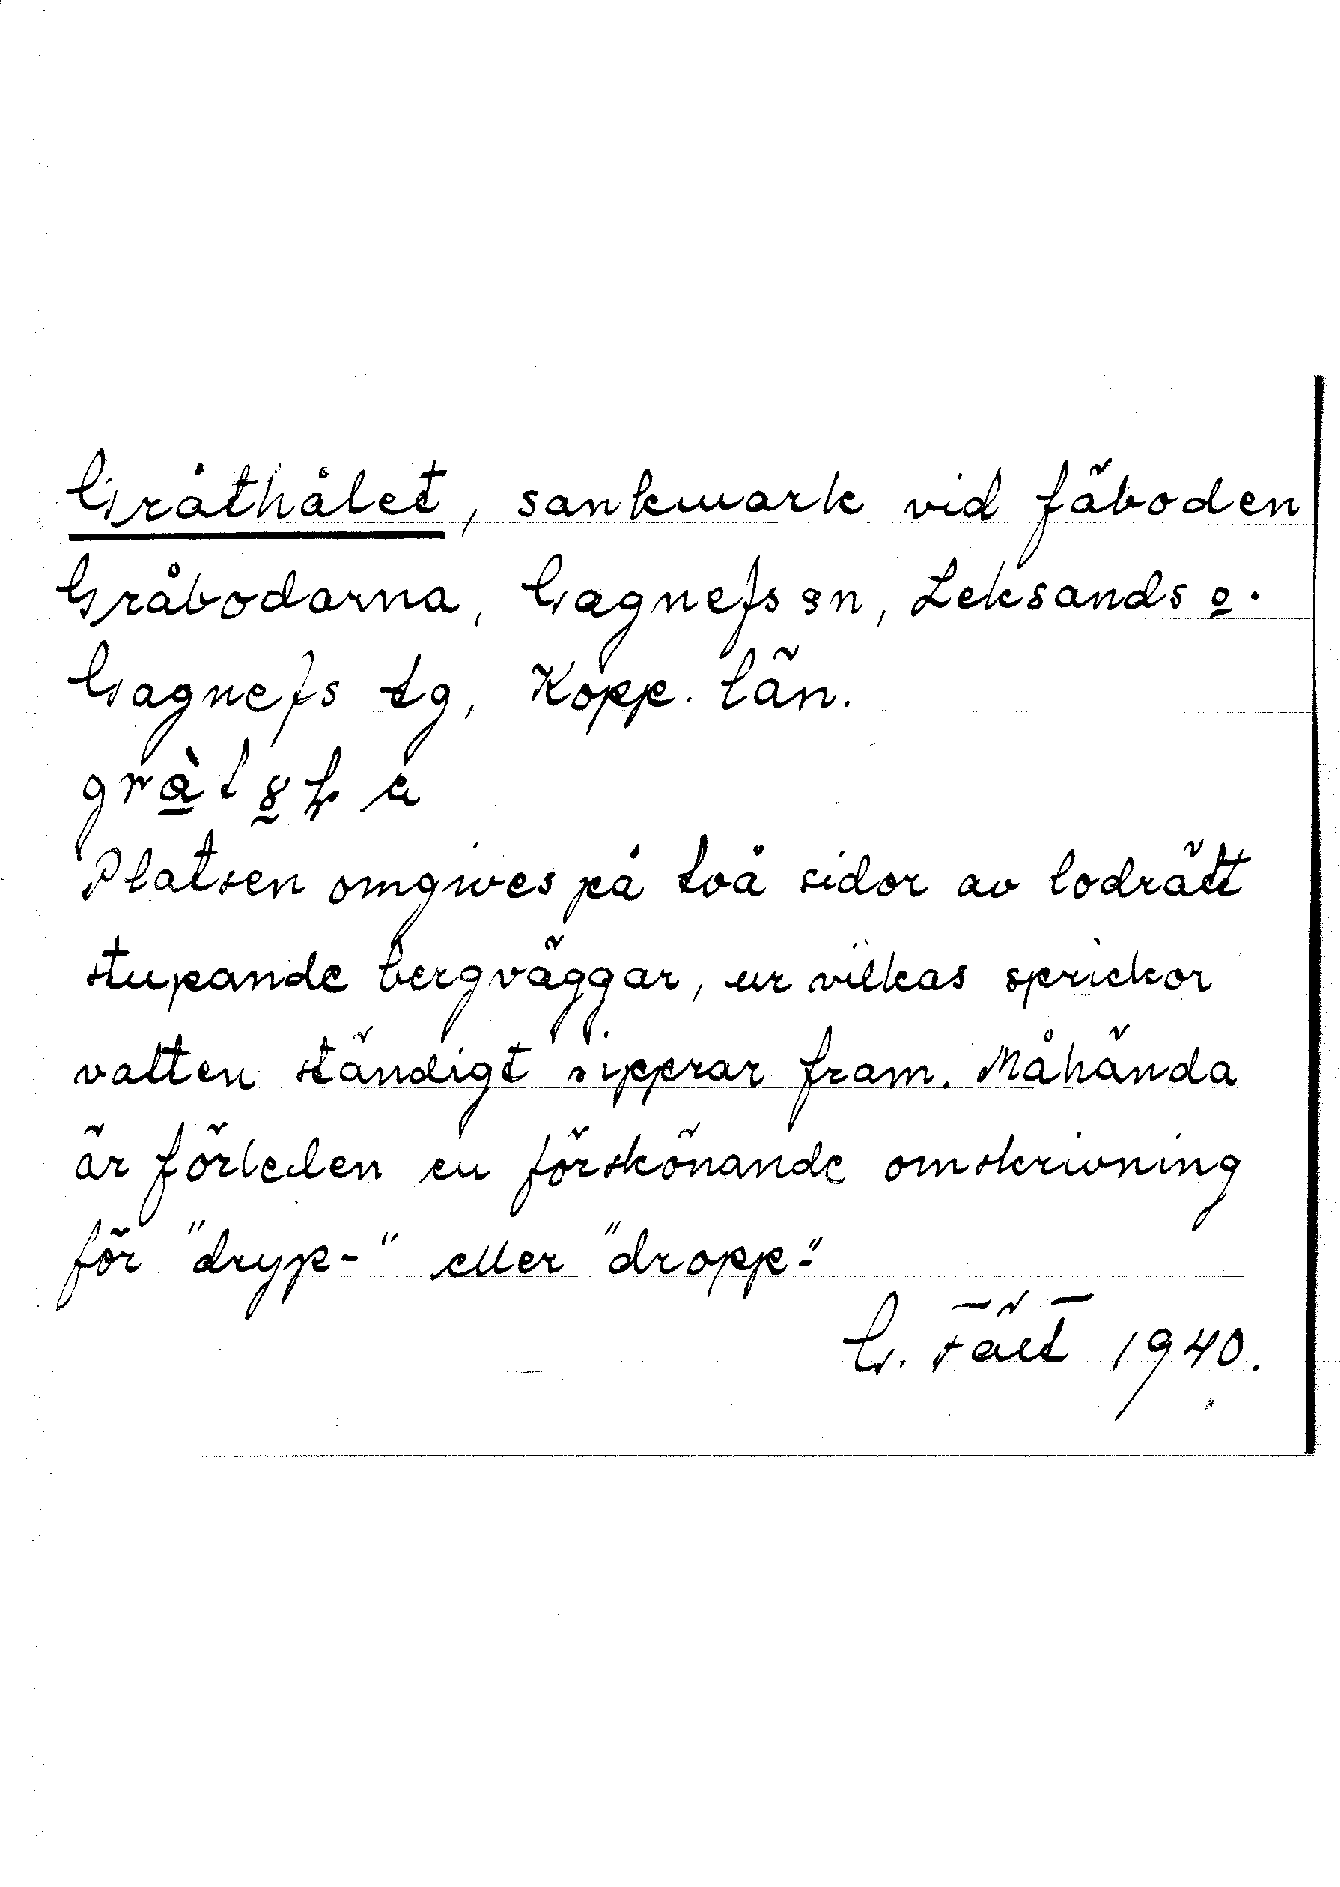 Gråthålet, sankmark vid fäboden
Gråbodarna, Gagnefs sn, Leksands o.
Gagnefs tg, Kopp. län.
Platsen omgives på två sidor av lodrätt
stupande bergväggar, ur vilkas sprickor
vatten ständigt sipprar fram. Måhända
är förleden en förskönande omskrivning
för "dryp-" eller "dropp-"
G. Fält 1940.